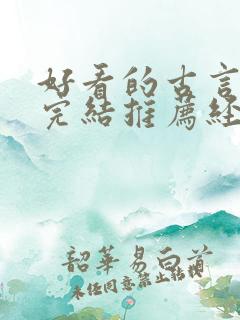 好看的古言
完結推薦経
韶華易白首
未经同意禁止转载